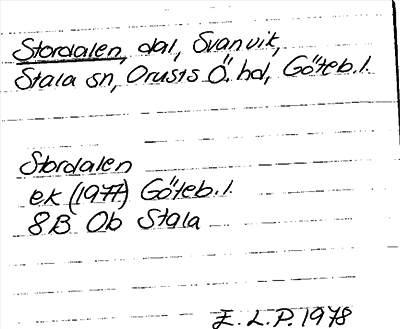 Stordalen, dal, Svanvik,
Stala sn, Orusts Ö. hd, Göteb. l.
Stordalen
ek (1977) Göteb. l.
8B Ob Stala
E. L. P. 1978